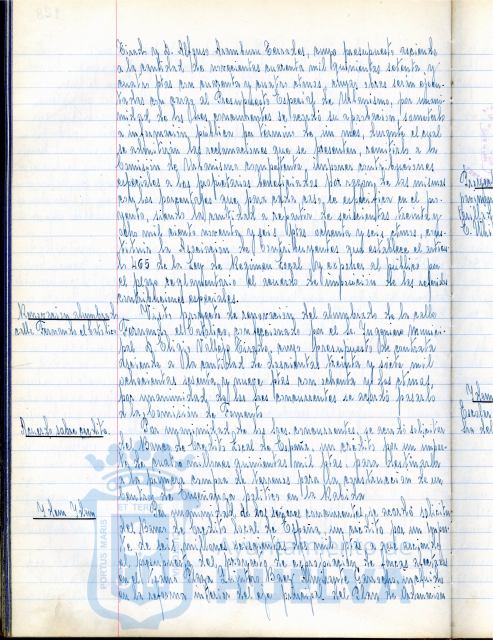 Tirado y D. Alfonso Aramburu Terrades, cuyo presupuesto asciende
a la cantidad de novecientas cuarenta mil quinientas setenta y
cuatro ptas con cuarenta y cuatro ctmos, cuyas obras serán ejecu-
tadas con cargo al Presupuesto Especial de Urbanismo, por unani-
midad de los Sres. concurrentes se acordó su aprobación, someterlo
a información pública por término de un mes, durante el cual
se admitirán las reclamaciones que se presenten, remitirlo a la
Comisión de Urbanismo competente, imponer contribuciones
especiales a los propietarios beneficiados por razón de las mismas
con los porcentajes que para cada caso, se especifica en el pro-
yecto, siendo la cantidad a repartir de seiscientas treinta y
ocho mil ciento noventa y seis ptas ochenta y seis ctmos, cons-
tituir la Asociación de Contribuyentes que establece el artícu-
lo 465 de la Ley de Régimen Local y exponer al público por
el plazo reglamentario el acuerdo de imposición de las referidas
contribuciones especiales.
Renovación alumbrado
calle Fernando el Católico
Visto proyecto de renovación del alumbrado de la calle
Fernando el Católico, confeccionado por el Sr. Ingeniero Munici-
pal D. Eligio Vallejo Tirado, cuyo presupuesto de contrata
asciende a la cantidad de doscientas treinta y siete mil
ochocientas sesenta y nueve ptas con ochenta y dos ctmos,
por unanimidad de los Sres concurrentes se acordó pasarlo
a la Comisión de Fomento.
Acuerdo sobre crédito.
Por unanimidad de los Sres. concurrentes, se acordó solicitar
del Banco de Crédito Local de España, un crédito por un impor-
te de cuatro millones quinientas mil ptas. para destinarlo
a la compra de terrenos para la construcción de un
Centro de Enseñanza político en La Rábida
Idem Idem
Por unanimidad de los señores concurrentes se acordó solicitar
del Banco de Crédito Local de España, un crédito por un impor-
te de seis millones seiscientas mil ptas a que asciende
el presupuesto del proyecto de expropiación de fincas afectadas
en el tramo Plaza Quintero Báez Almirante Garrocho, incluido
en la reforma interior del eje principal del Plan de Ordenación
PORTUS MARIS ET TERRAE